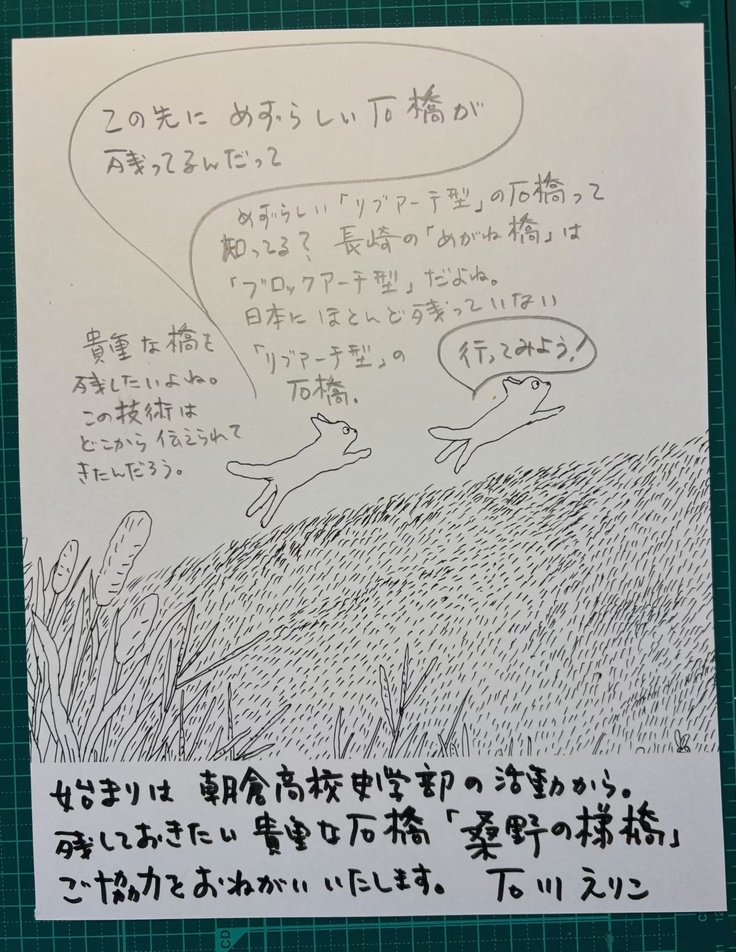 この先に めずらしい 石橋が
残ってるんだって
めずらしい「リブアーチ型」の石橋って
知ってる? 長崎の「めがね橋」は
「ブロックアーチ型」だよね。
日本に ほとんど残っていない
「リブアーチ型」の
石橋。
行ってみよう!
貴重な橋を
残したいよね。
この技術は
どこから伝えられて
きたんだろう。
始まりは 朝倉高校史学部の活動から。
残しておきたい貴重な石橋「桑野の梯橋」
ご協力をおねがいいたします。 石川えりこ